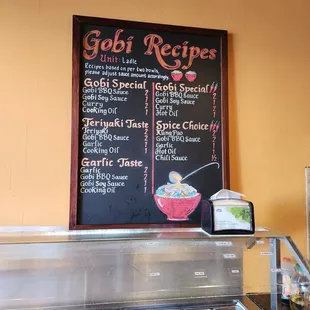 Gobi Recipes
Unit: Ladle
Recipes based on per two bowls,
please adjust sauce amounts accordingly.
Gobi Special
Gobi BBQ Sauce 2
Gobi Soy Sauce
Curry
Cooking Oil
Teriyaki Taste
Teriyaki
Gobi BBQ Sauce
Garlic
Cooking Oil
Garlic Taste
Garlic
Gobi BBQ Sauce
Gobi Soy Sauce
Cooking Oil
Gobi Special
Gobi BBQ Sauce
Gobi Soy Sauce
Curry
Hot Oil
Spice Choice
Kung Pao
Gobi BBQ Sauce
Garlic
Hot Oil
Chili Sauce ½